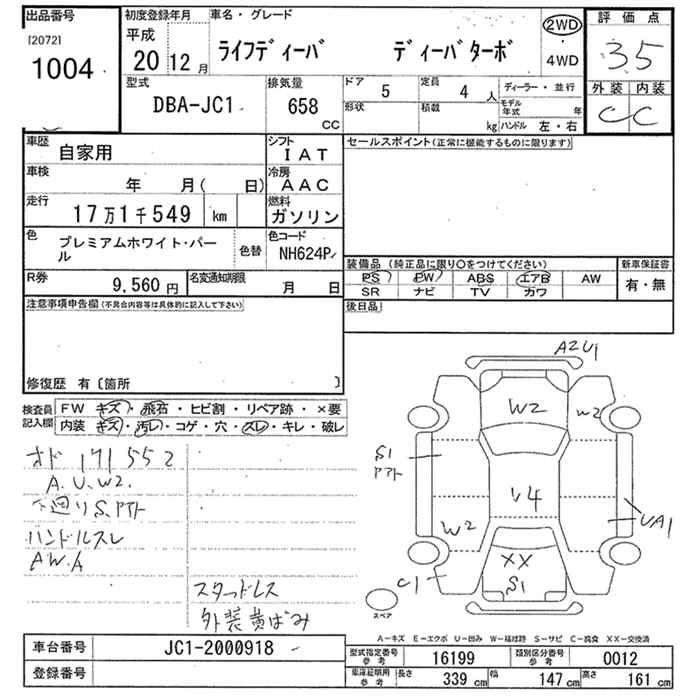 出品番号
[2072]
1004
初度登録年月
平成
20 12 月
車名・グレード
ライフディーバ ディーバターボ
2WD
・
4WD
評価点
3.5
外装 内装
C C
型式
DBA-JC1
排気量
658
CC
ドア 5
定員 4 人
ディーラー・並行
形状
積載 kg
モデル年式 年
ハンドル 左・右
車歴
自家用
シフト
IAT
セールスポイント(正常に機能するものに限ります)
車検
年 月( 日)
冷房
AAC
走行
17万1千549 km
燃料
ガソリン
色
プレミアムホワイト・パール
色替
色コード
NH624P
装備品 (純正品に限り○をつけてください)
新車保証書
PS PW ABS エアB AW
SR ナビ TV カワ
有・無
R券
9,560 円
名変通知期限
月 日
後日品
注意事項申告欄(不具合内容等は具体的に記入して下さい)
修復歴 有〔箇所 〕
検査員記入欄
FW キズ・飛石・ヒビ割・リペア跡・×要
内装 キズ・汚レ・コゲ・穴・スレ・キレ・破レ
オド 171552
A.U.W2.
下廻りS.アト
ハンドルスレ
AW.A
スタッドレス
外装黄ばみ
A2U1
W2
W2
S1
アト
U4
UA1
W2
XX
S1
C1
スペア
A－キズ E－エクボ U－凹み W－補修跡 S－サビ C－腐食 XX－交換済
車台番号
JC1-2000918
登録番号
型式指定番号
参考
16199
類別区分番号
参考
0012
車庫証明用
参考
長さ 339 cm
幅 147 cm
高さ 161 cm